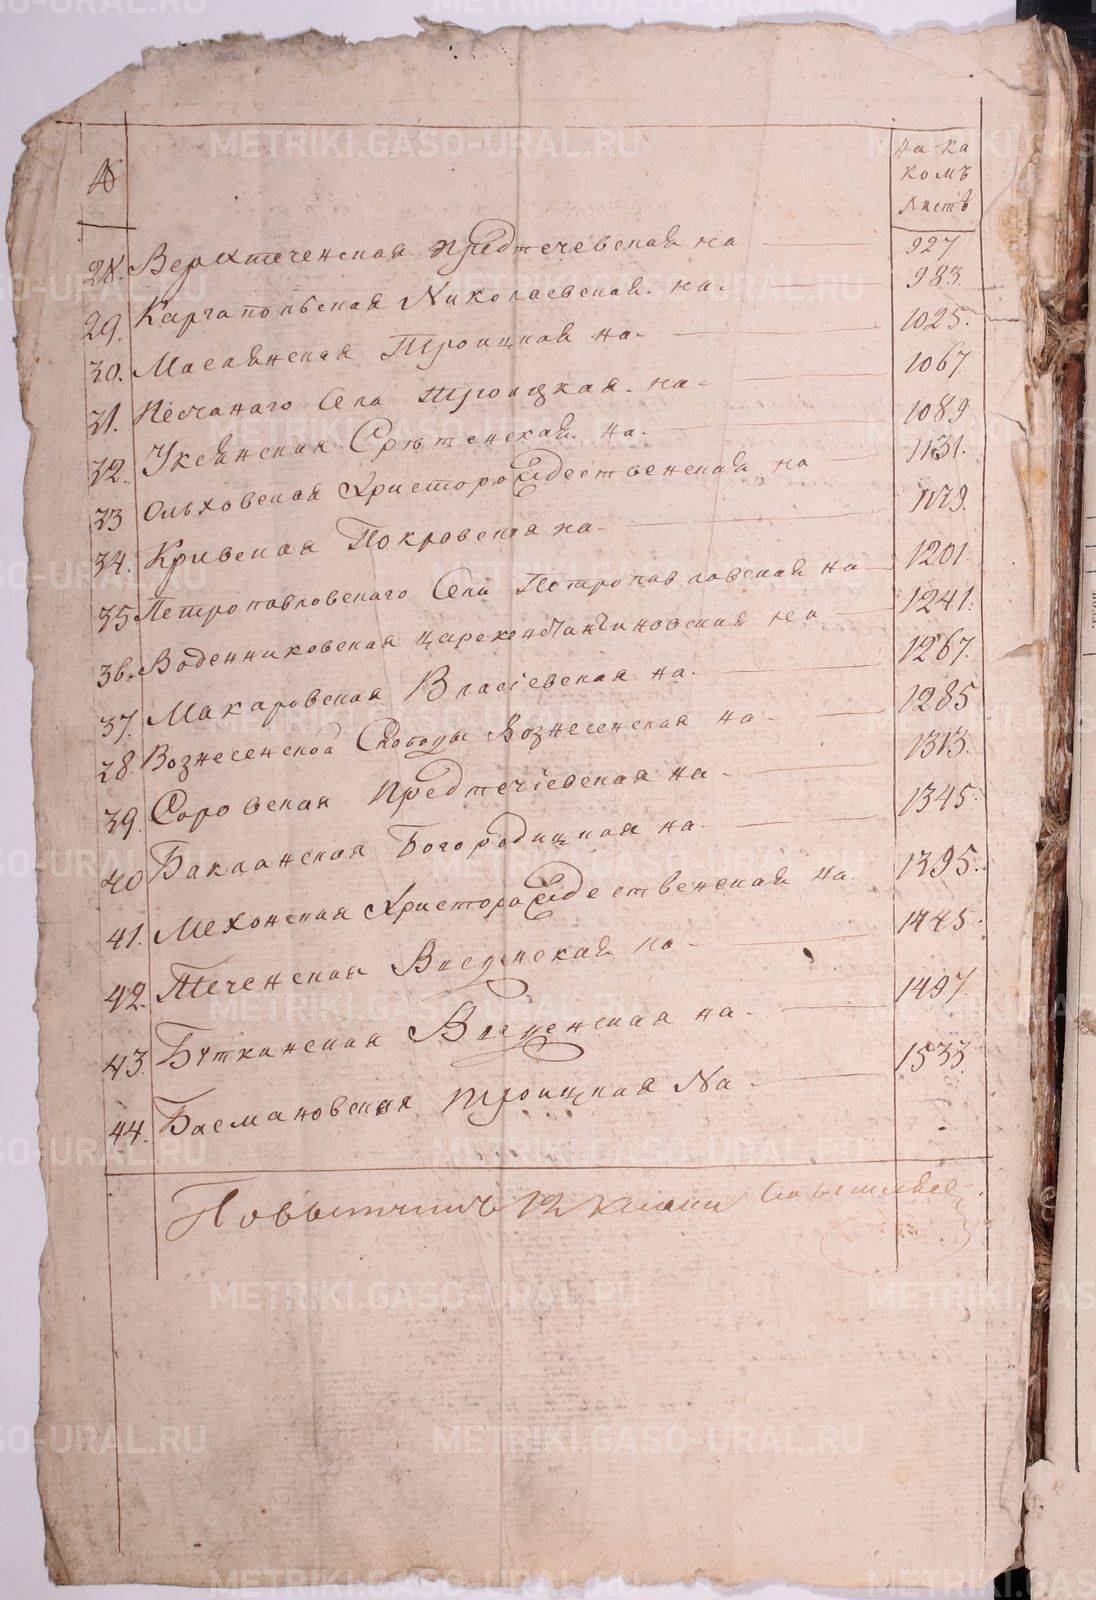 №
на ка
комъ
листѣ
28. Верхтеченская Предтечевская на 927
29. Каргапольская Николаевская на 983.
30. Маслянская Троицкая на 1025.
31. Песчанаго Села Троицкая на 1067
32. Уксянская Срѣтенская на 1089
33 Ольховская Христорождественская на 1131.
34. Кривская Покровская на 1179.
35. Петропавловскаго Села Петропавловская на 1201.
36. Воденниковская Цареконстантиновская на 1241.
37. Макаровская Власіевская на 1267.
38. Вознесенской Слободы Вознесенская на 1285
39. Соровская Предтечіевская на 1313.
40 Бакланская Богородицкая на 1345.
41. Мехонская Христорождественская на 1395.
42. Теченская Введенская на 1445.
43. Буткинская Введенская на 1497.
44. Басмановская Троицкая На 1533.
Повытчикъ
METRIKI.GASO-URAL.RU